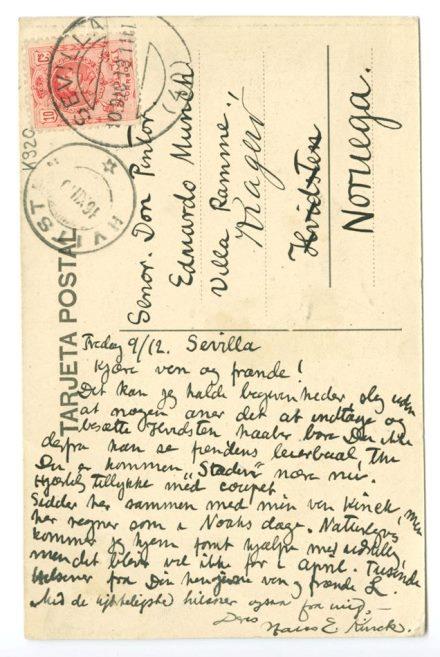 SEVILLA
HVITSTE
K320
TARJETA POSTAL
Senor. Don Pintor
Eduardo Munch
"Villa Ramme"
Kragerö
Hvidsten
Noruega.
Fredag 9/12. Sevilla
Kjære ven og frænde!
Det kan jeg kalde begivenheder, slig uden
at nogen aner det at indtage og
besætte Hvidsten haaber bare Du ikke
derfra kan se fiendens leierbaal Thi
Du er kommen "Staden" nære nu.
Hjærtelig tillykke med coupet
Sidder her sammen med min ven Kinck, men
her regner som i Noahs dage. Naturligvis
kommer jeg hjem forat hjælpe med
men det blir vel ikke før i april. Tusinde
Hilsener fra Din hengivne ven og frænde L.
Med de hjerteligste hilsener ogsaa fra mig. –
Deres
Hans E. Kinck.